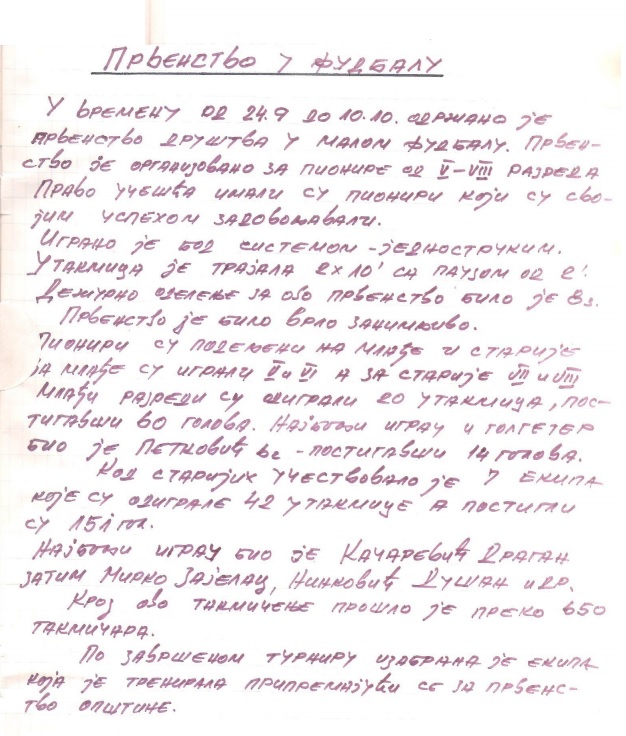 Првенство у фудбалу
У времену од 24.9 до 10.10. одржано је
првенство друштва у малом фудбалу. Првен-
ство је организовано за пионире од V-VIII разреда
Право учешћа имали су пионири који су сво-
јим успехом задовољавали.
Играно је бод системом - једноструким.
Утакмица је трајала 2x10' са паузом од 2'.
Дежурно оделење за ово првенство било је 8з.
Првенство је било врло занимљиво.
Пионири су подељени на млађе и старије
за млађе су играли V и VI а за старије VII и VIII
Млађи разреди су одиграли 20 утакмица, пос-
тигавши 60 голова. Најбољи играч и голгетер
био је Петковић 6г - постигавши 14 голова.
Код старијих учествовало је 7 екипа
које су одиграле 42 утакмице а постигли
су 151 гол.
Најбољи играч био је Качаревић Драган
затим Мирко Зајелац, Нинковић Душан и др.
Кроз ово такмичење прошло је преко 650
такмичара.
По завршеном турниру изабрана је екипа
која је тренирала припремајући се за првенс-
тво општине.